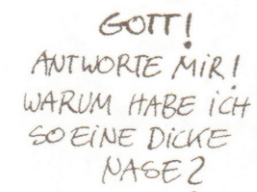 GOTT!
ANTWORTE MiR!
WARUM HABE iCH
SO EiNE DiCKE
NASE?